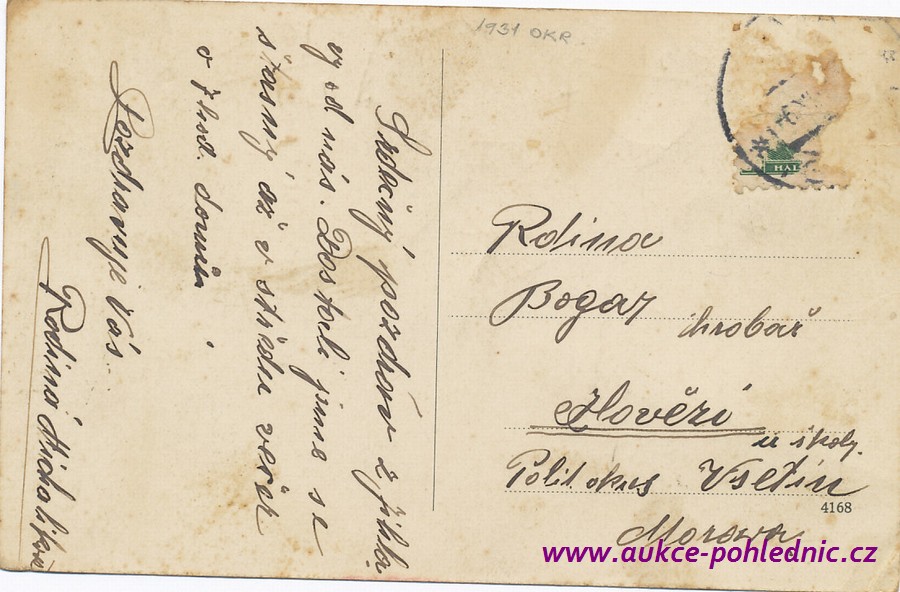 1931 OKR
Srdečný pozdrav z Jihla
vy od nás. Dostali jsme se
šťasný až v středu večer
o 7 hod. domu
Pozdravuje Vás
Rodina Michalikova
HAL
Rdina
Bogar hrobař
Hovězí
u školy.
Polit okres Vsetín
Morava
4168
www.aukce-pohlednic.cz